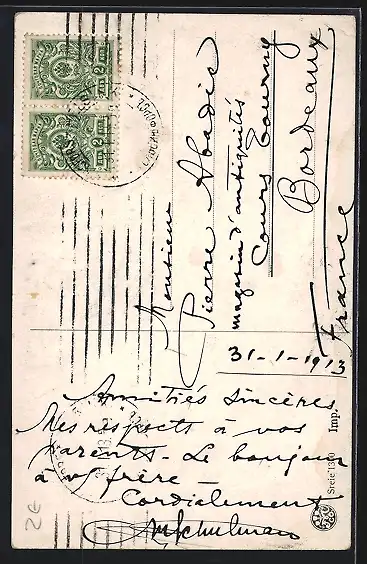 Monsieur
Pierre Abadie
magasin d'antiquités
Cours Tourny
Bordeaux
France
31-1-1913
Amitiés Sincères
Mes respects à vos
parents - Le bonjour
à v/ frère -
Cordialement
Imp.
Sreie 1300
2 КОП
2 КОП
2€